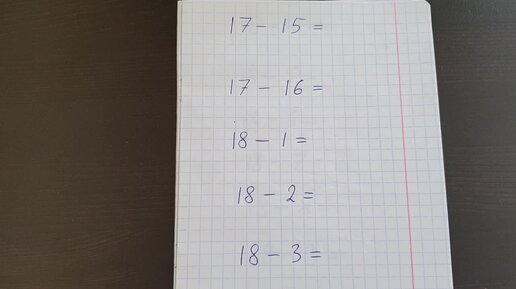 17 - 15 =
17 - 16 =
18 - 1 =
18 - 2 =
18 - 3 =